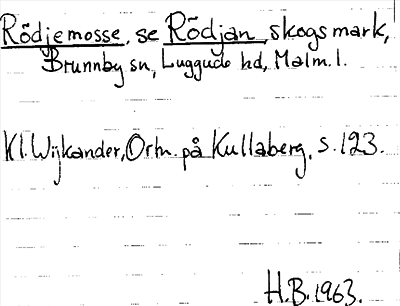 Rödjemosse, se Rödjan, skogsmark,
Brunnby sn, Luggude hd, Malm. l.
Kl. Wijkander, Ortn. på Kullaberg, s. 123.
H.B. 1963.